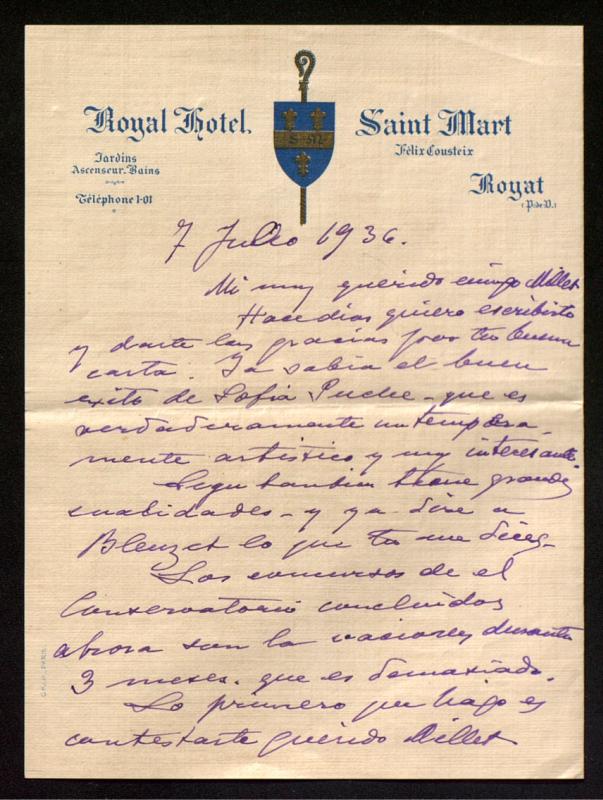 Royal Hotel. Saint Mart
Jardins
Ascenseur. Bains
Téléphone 1-01
Félix Cousteix
Royat
(P.de D.)
7 Julio 1936.
Mi muy querido amigo Millet
Hace dias quiero escribirte
y darte las gracias por tu buena
carta. Ya sabia el buen
exito de Sofia Puche - que es
verdaderamente un tempera-
mente artistico y muy interesante.
tambien tiene grandes
cualidades - y ya dire a
lo que tu me dices -
Los concursos de el
Conservatorio concluidos
ahora son la vaciones durante
3 meses. que es demasiado.
Lo primero que hago es
contestarte querido Millet